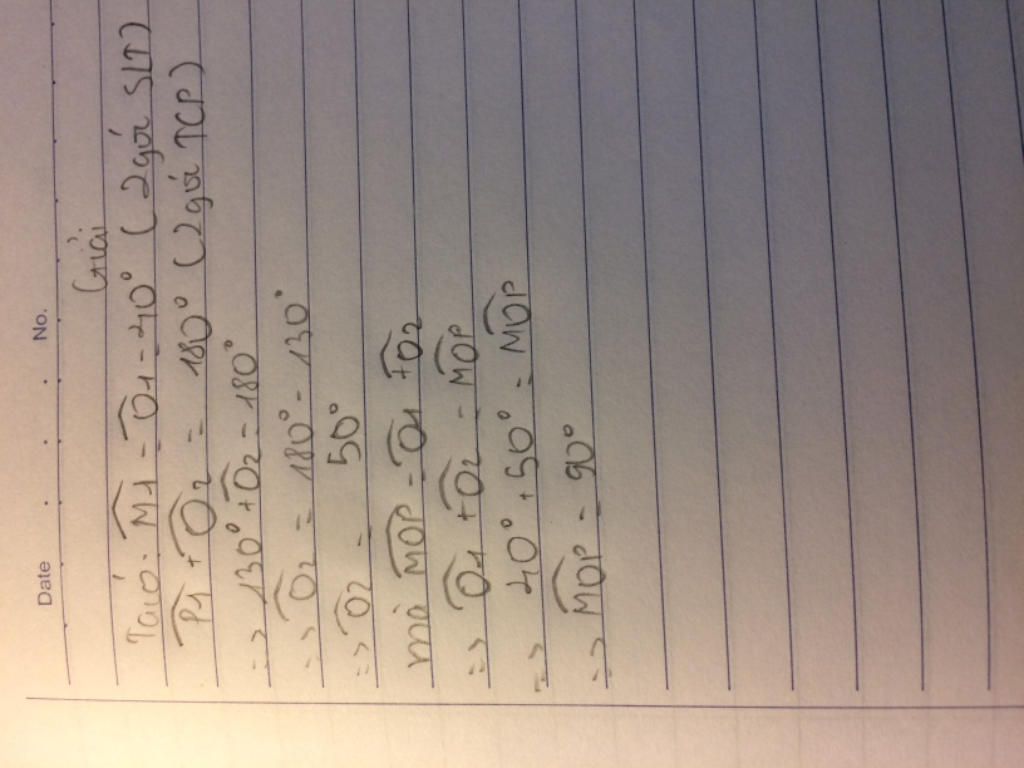 Date . . . No.
Giải
Ta có: M̂1 = Ô1 = 40° (2 góc SLT)
P̂1 + Ô2 = 180° (2 góc TCP)
=> 130° + Ô2 = 180°
=> Ô2 = 180° - 130°
=> Ô2 = 50°
mà M̂OP = Ô1 + Ô2
=> Ô1 + Ô2 = M̂OP
=> 40° + 50° = M̂OP
=> M̂OP = 90°